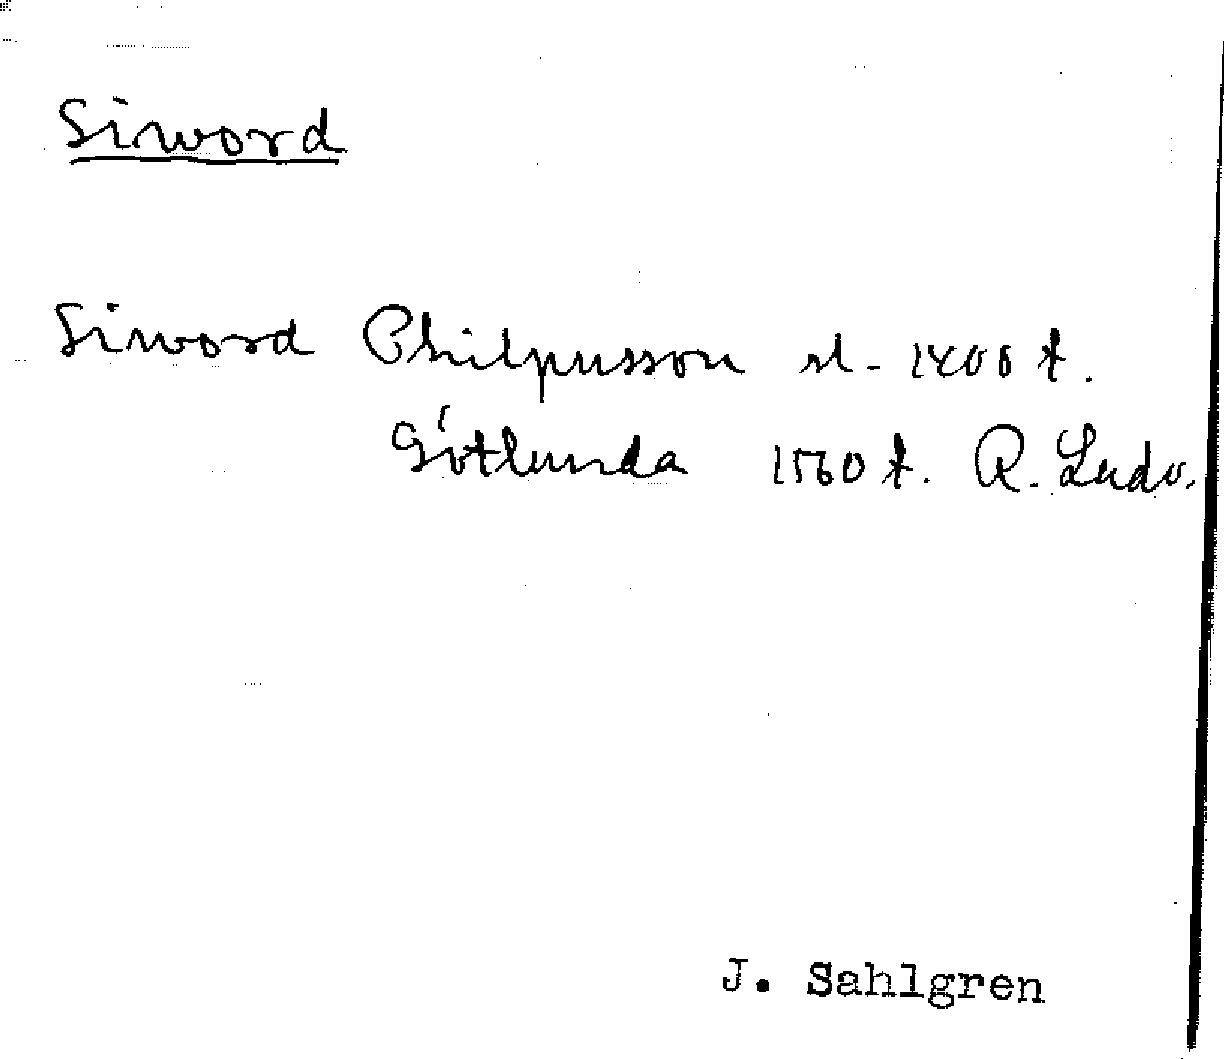 Siword
Siword Philpusson sl. 1400 t.
Götlunda 1560 t. R. Ludv.
J. Sahlgren